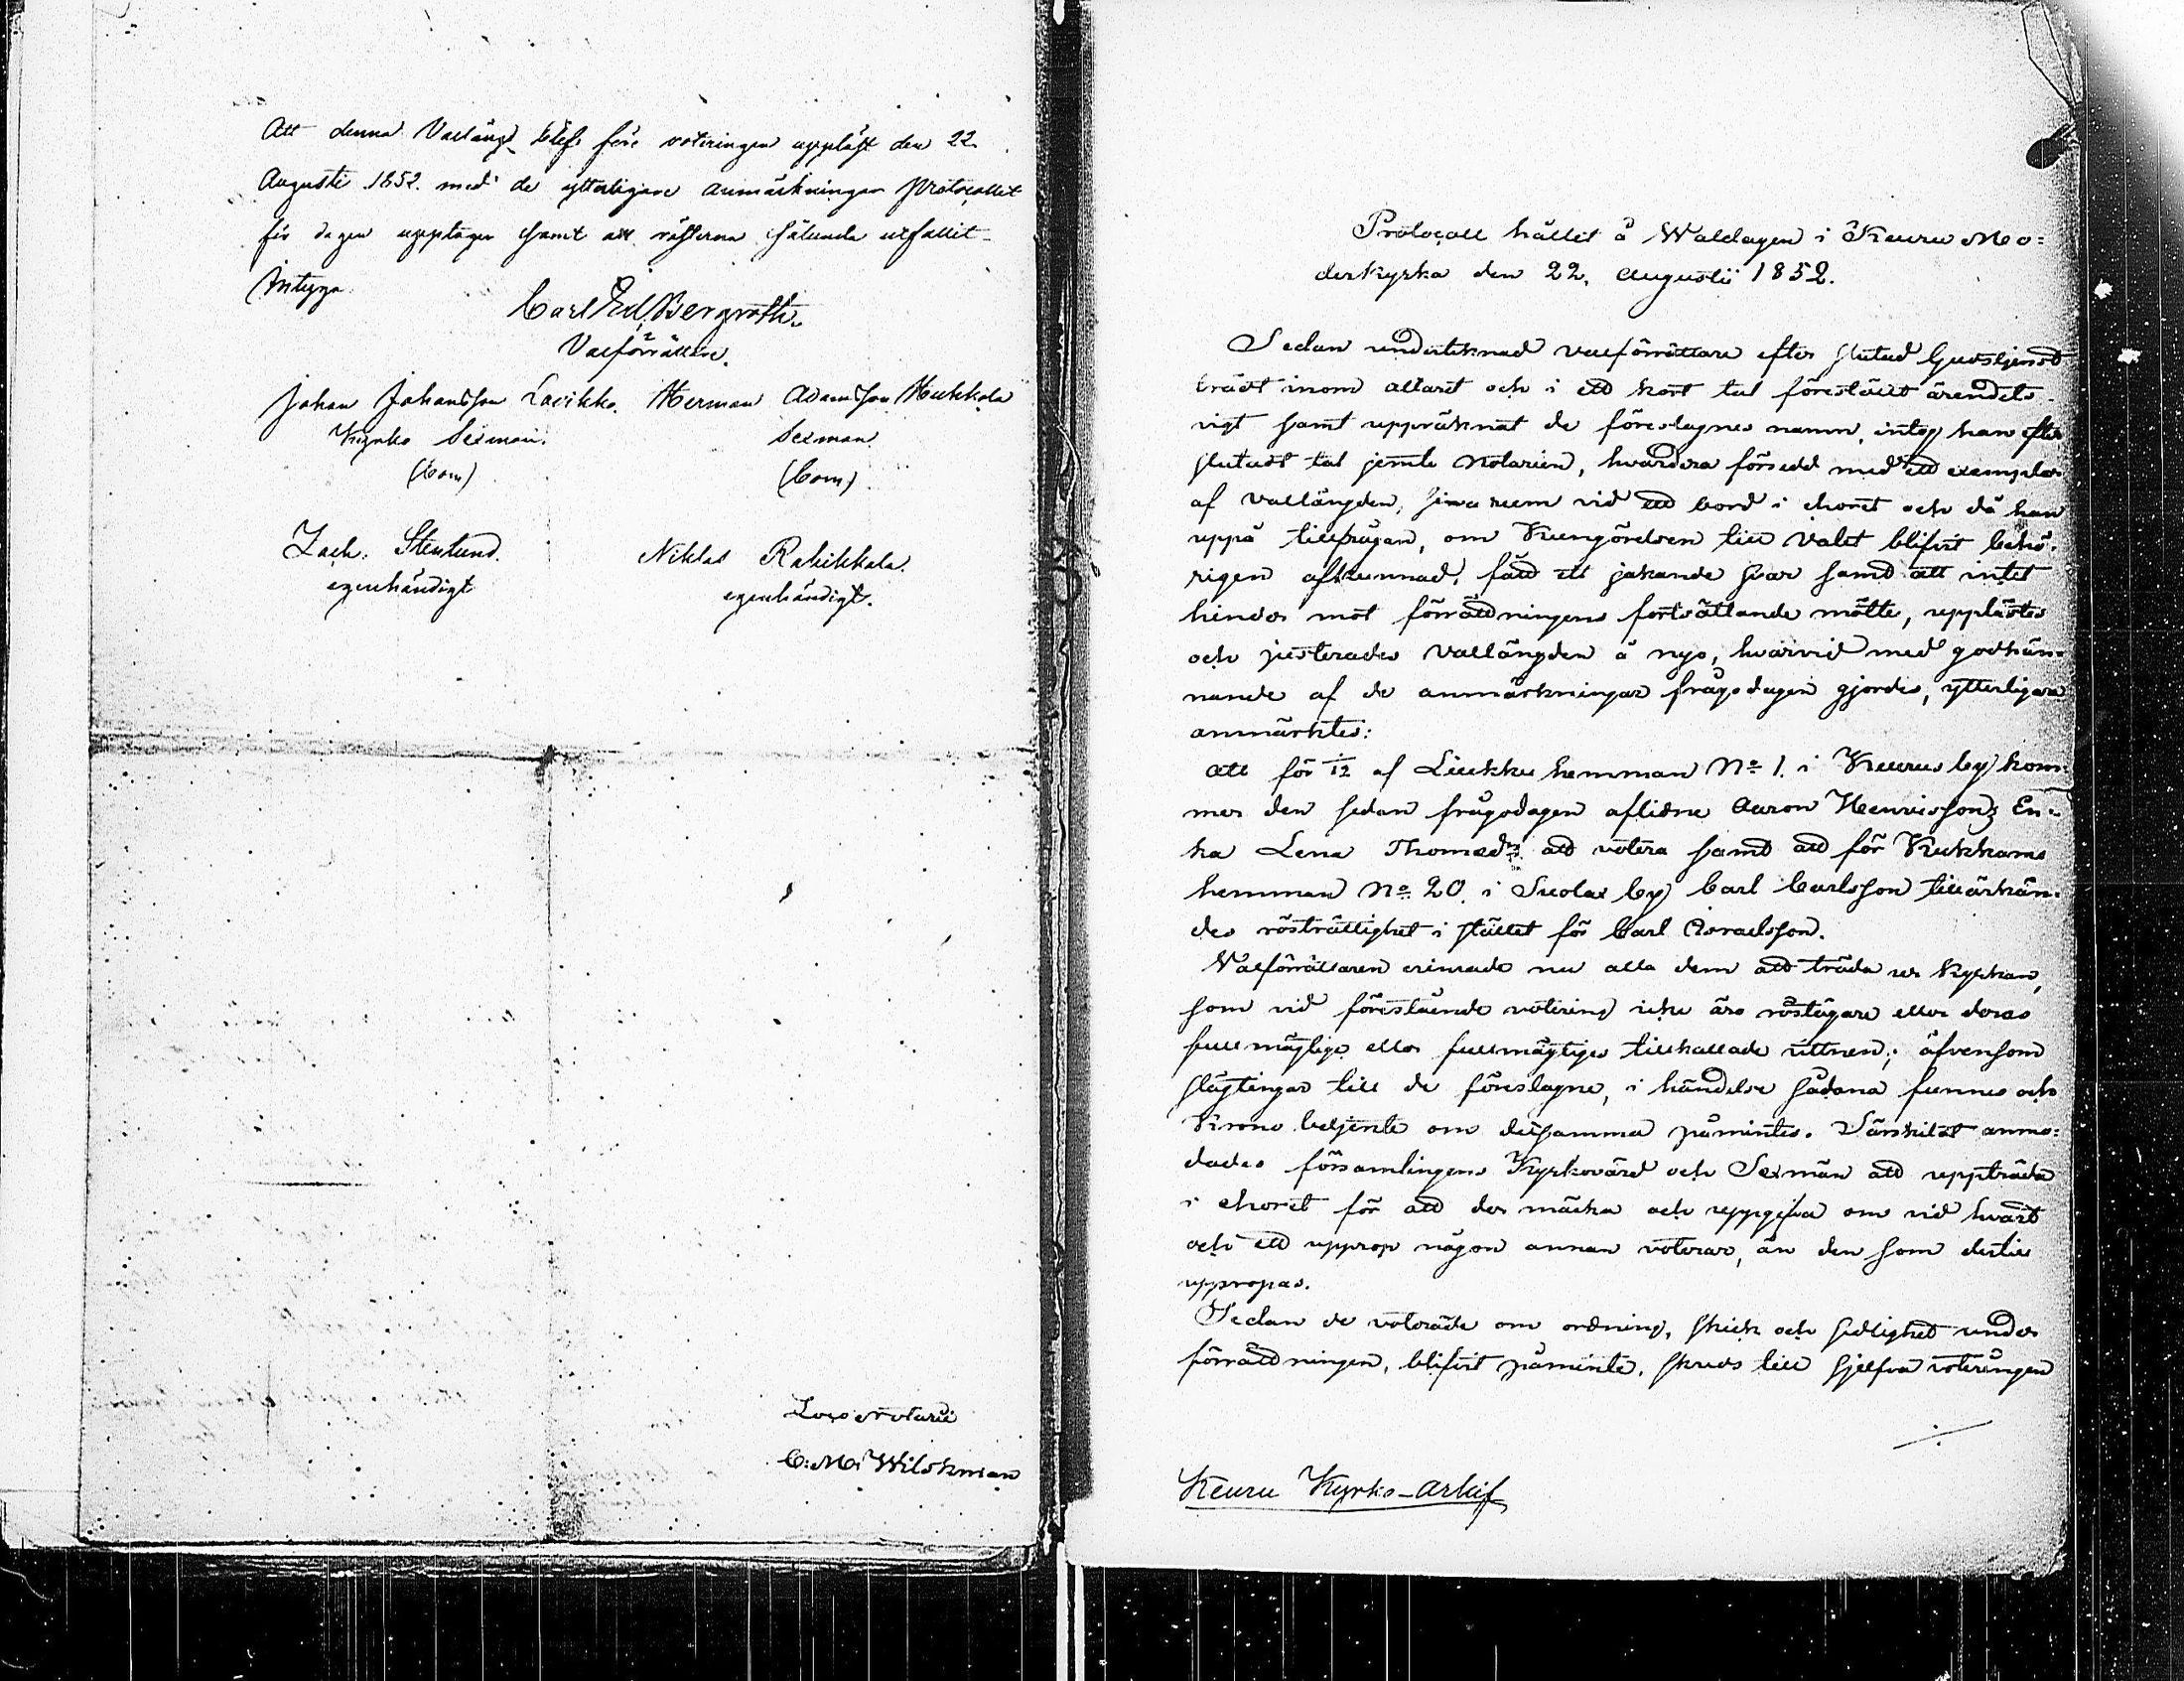 Att denna Vallängd blef före voteringen uppläst den 22
Augusti 1852. med de ytterligare anmärkningar Protocollet
för dagen upptager samt att rösterna sålunda utfallit
Intyga
Carl Ed. Bergroth.
Valförrättare.
Johan Johansson Lavikko. Herman Adamsson Hukkola
Kyrko Sexman. Sexman.
(bom) (bom)
Zach: Stenlund. Niklas Rahikkala.
egenhändigt egenhändigt.
Loco Notarii
C. M. Wilskman
Protocoll hållit å Waldagen i Keuru Mo=
derkyrka den 22. Augustii 1852.
Sedan undertecknad valförrättare efter slutad Gudstjenst
trädt inom altaret och i ett kort tal föreställt ärendets
vigt samt uppräknat de föreslagnes namn, intog han efter
slutadt tal jemte Notarien, hvardera försedd med ett exemplar
af vallängden, sina rum vid ett bord i choret och då han
uppå tillfrågan, om Kungörelsen till Valet blifvit behö=
rigen afkunnad, fått ett jakande svar samt att intet
hinder mot förrättningens fortsättande mötte, upplästes
och justerades Vallängden å nyo, hvarvid med godkän=
nande af de anmärkningar frågodagen gjordes, ytterligare
anmärktes:
att för 1/12 af Liukku hemman No 1. i Keuru by kom=
mer den sedan frågodagen aflidne Aaron Henricssons En=
ka Lena Thomædr att votera samt att för Kukkans
hemman No 20. i Suolax by Carl Carlsson tillärkän=
des rösträttighet i stället för Carl Israelsson.
Valförrättaren erinrade nu alla dem att träda ur Kyrkan,
som vid förestående votering icke äro röstägare eller deras
fullmägtige eller fullmägtiges tillkallade vittnen; äfvensom
slägtingar till de föreslagne, i händelse sådana funnes och
Krono betjente om detsamma påmintes. Särskildt anmo=
dades församlingens Kyrkovärd och Sexmän att uppträda
i choret för att der märka och uppgifva om vid hvart
och ett upprop någon annan voterar, än den som dertill
uppropas.
Sedan de voterande om ordning, skick och sedlighet under
förrättningen, blifvit påminte, skreds till sjelfva voteringen
Keuru Kyrko-arkif